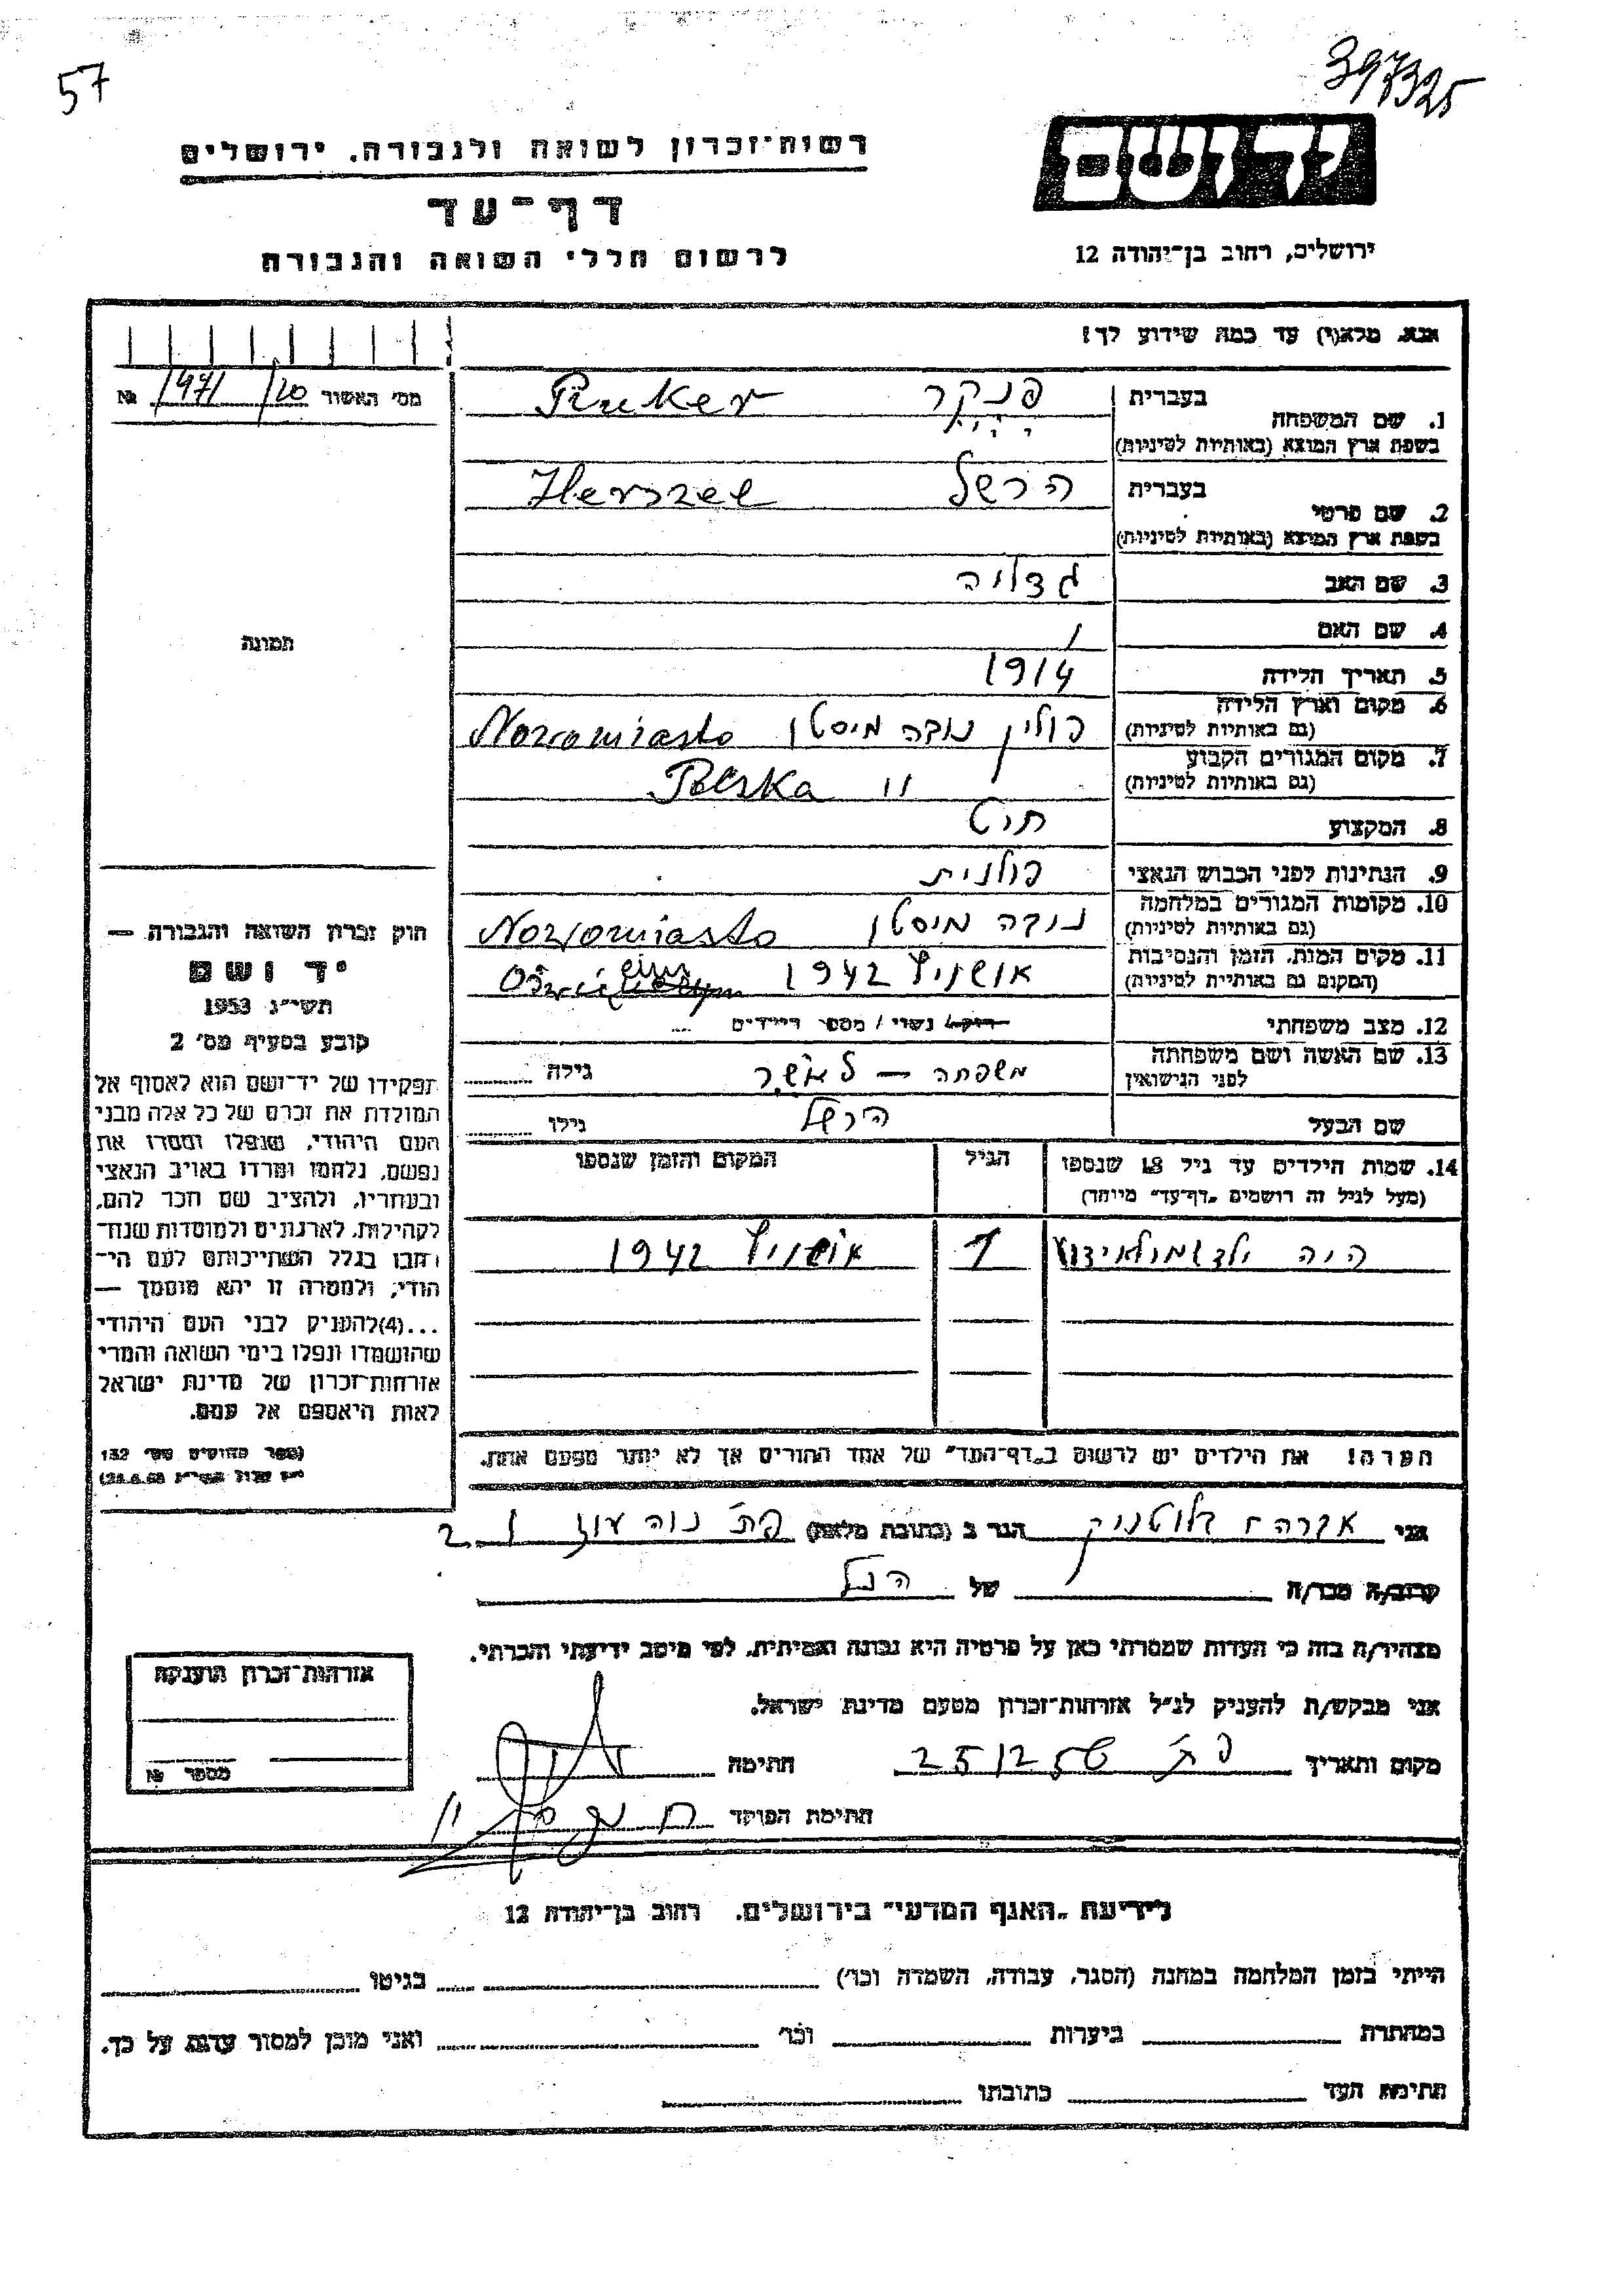 57
397325
רשות־זכרון לשואה ולגבורה, ירושלים
ד ף ־ ע ד
לרשום חללי השואה והגבורה
ירושלים, רחוב בן־יהודה 12
אנא, מלא(י) עד כמה שידוע לך!
מס׳ האשור 1971/20 №
תמונה
1. שם המשפחה
בעברית פנקר Pinker
בשפת ארץ המוצא (באותיות לטיניות)
2. שם פרטי
בעברית הרשל Herszel
בשפת ארץ המוצא (באותיות לטיניות)
3. שם האב גדליה
4. שם האם /
5. תאריך הלידה 1914
6. מקום וארץ הלידה
(גם באותיות לטיניות) פולין נובה מיסטו Nowomiasto
7. מקום המגורים הקבוע
(גם באותיות לטיניות) " Polska
8. המקצוע חיט
9. הנתינות לפני הכבוש הנאצי פולנית
10. מקומות המגורים במלחמה
(גם באותיות לטיניות) נובה מיסטו Nowomiasto
11. מקום המות, הזמן והנסיבות
(המקום גם באותיות לטיניות) אושויץ 1942
12. מצב משפחתי רוק/ נשוי / מספר הילדים
13. שם האשה ושם משפחתה
לפני הנישואין משפחה — גילה
שם הבעל הרשל גילו
14. שמות הילדים עד גיל 18 שנספו
(מעל לגיל זה רושמים „דף־עד״ מיוחד)
הגיל
המקום והזמן שנספו
היה ילד 1 אושויץ 1942
הערה! את הילדים יש לרשום ב„דף־העד״ של אחד ההורים אך לא יותר מפעם אחת.
חוק זכרון השואה והגבורה —
י ד ו ש ם
תשי״ג 1953
קובע בסעיף מס׳ 2
תפקידו של יד־ושם הוא לאסוף אל
המולדת את זכרם של כל אלה מבני
העם היהודי, שנפלו ומסרו את
נפשם, נלחמו ומרדו באויב הנאצי
ובעוזריו, ולהציב שם וזכר להם,
לקהילות, לארגונים ולמוסדות שנח־
רבו בגלל השתייכותם לעם הי־
הודי; ולמטרה זו יהא מוסמך —
...(4)להעניק לבני העם היהודי
שהושמדו ונפלו בימי השואה והמרי
אזרחות־זכרון של מדינת ישראל
לאות היאספם אל עמם.
(ספר החוקים מס׳ 132
אני אברהם זלוטניק הגר ב (כתובת מלאה) פ״ת נוה עוז
קרוב/ה מכר/ה של הנ״ל
מצהיר/ה בזה כי העדות שמסרתי כאן על פרטיה היא נכונה ואמיתית, לפי מיטב ידיעתי והכרתי.
אני מבקש/ת להעניק לנ״ל אזרחות־זכרון מטעם מדינת ישראל.
מקום ותאריך פ״ת 25/2 56 חתימה
חתימת הפוקד
אזרחות־זכרון הוענקה
מספר №
לידיעת „האגף המדעי״ בירושלים, רחוב בן־יהודה 12
הייתי בזמן המלחמה במחנה (הסגר, עבודה, השמדה וכו׳) בגיטו
במחתרת ביערות וכו׳ ואני מוכן למסור עדות על כך.
חתימת העד כתובתו